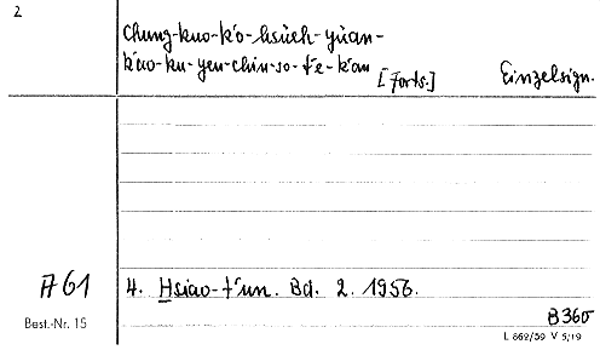 2
Chung-kuo-k'o-hsüeh-yüan-
k'ao-ku-yen-chiu-so-t'e-k'an
[Forts.] Einzelsign.
A 61
4. Hsiao-t'un. Bd. 2. 1956.
B 360
Best.-Nr. 15
L 862/59 V 5/19